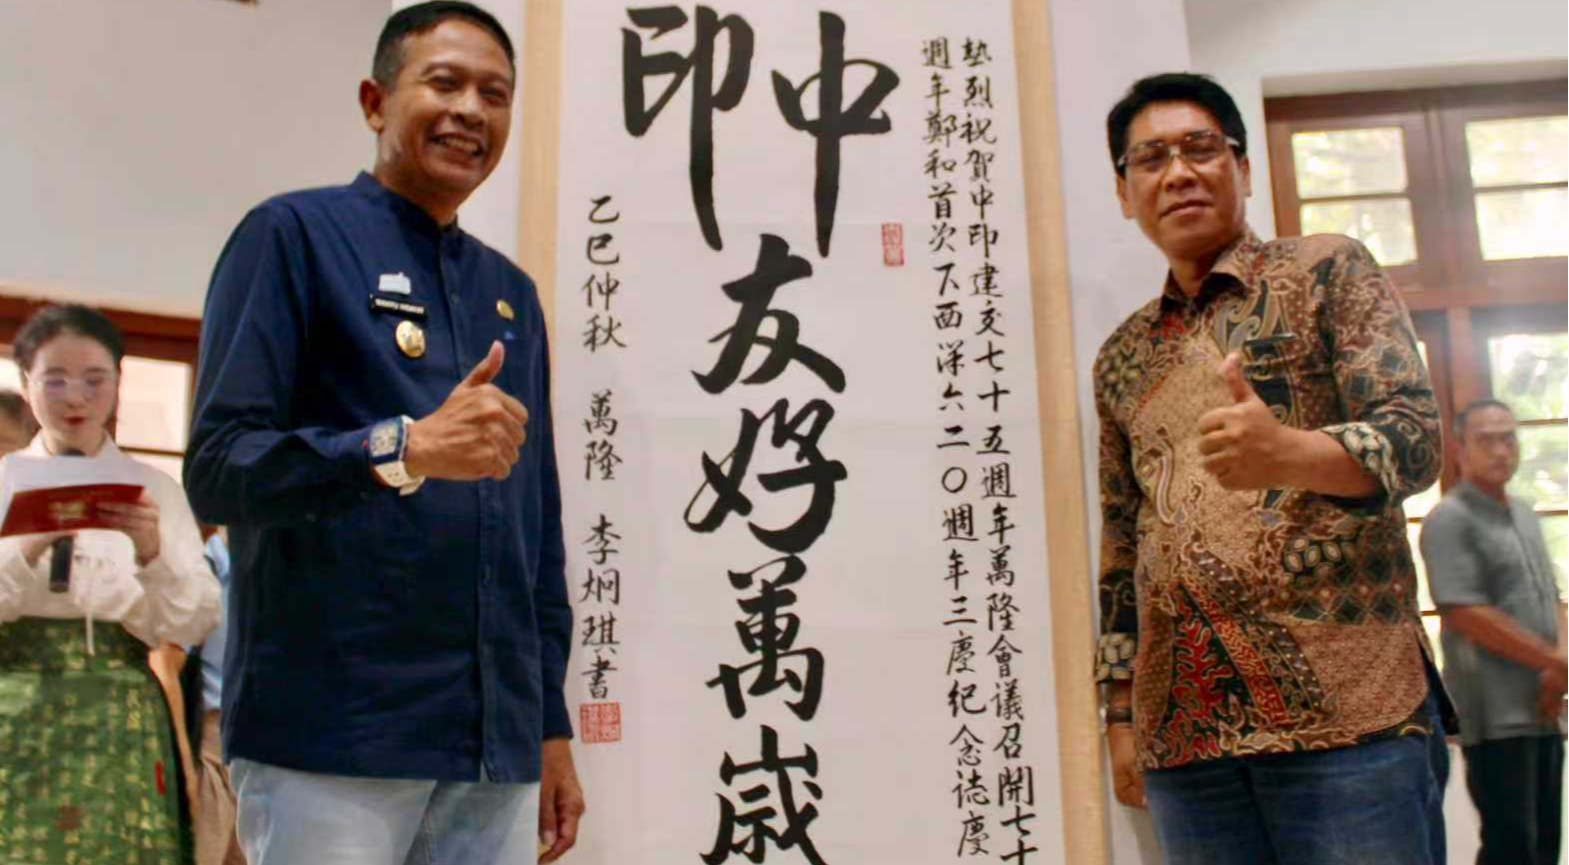 熱烈祝賀中印建交七十五週年萬隆會议召開七十
週年鄭和首次下西洋六二〇週年三慶紀念誌慶
中印
友好萬歲
乙巳仲秋 萬隆 李炯琪書